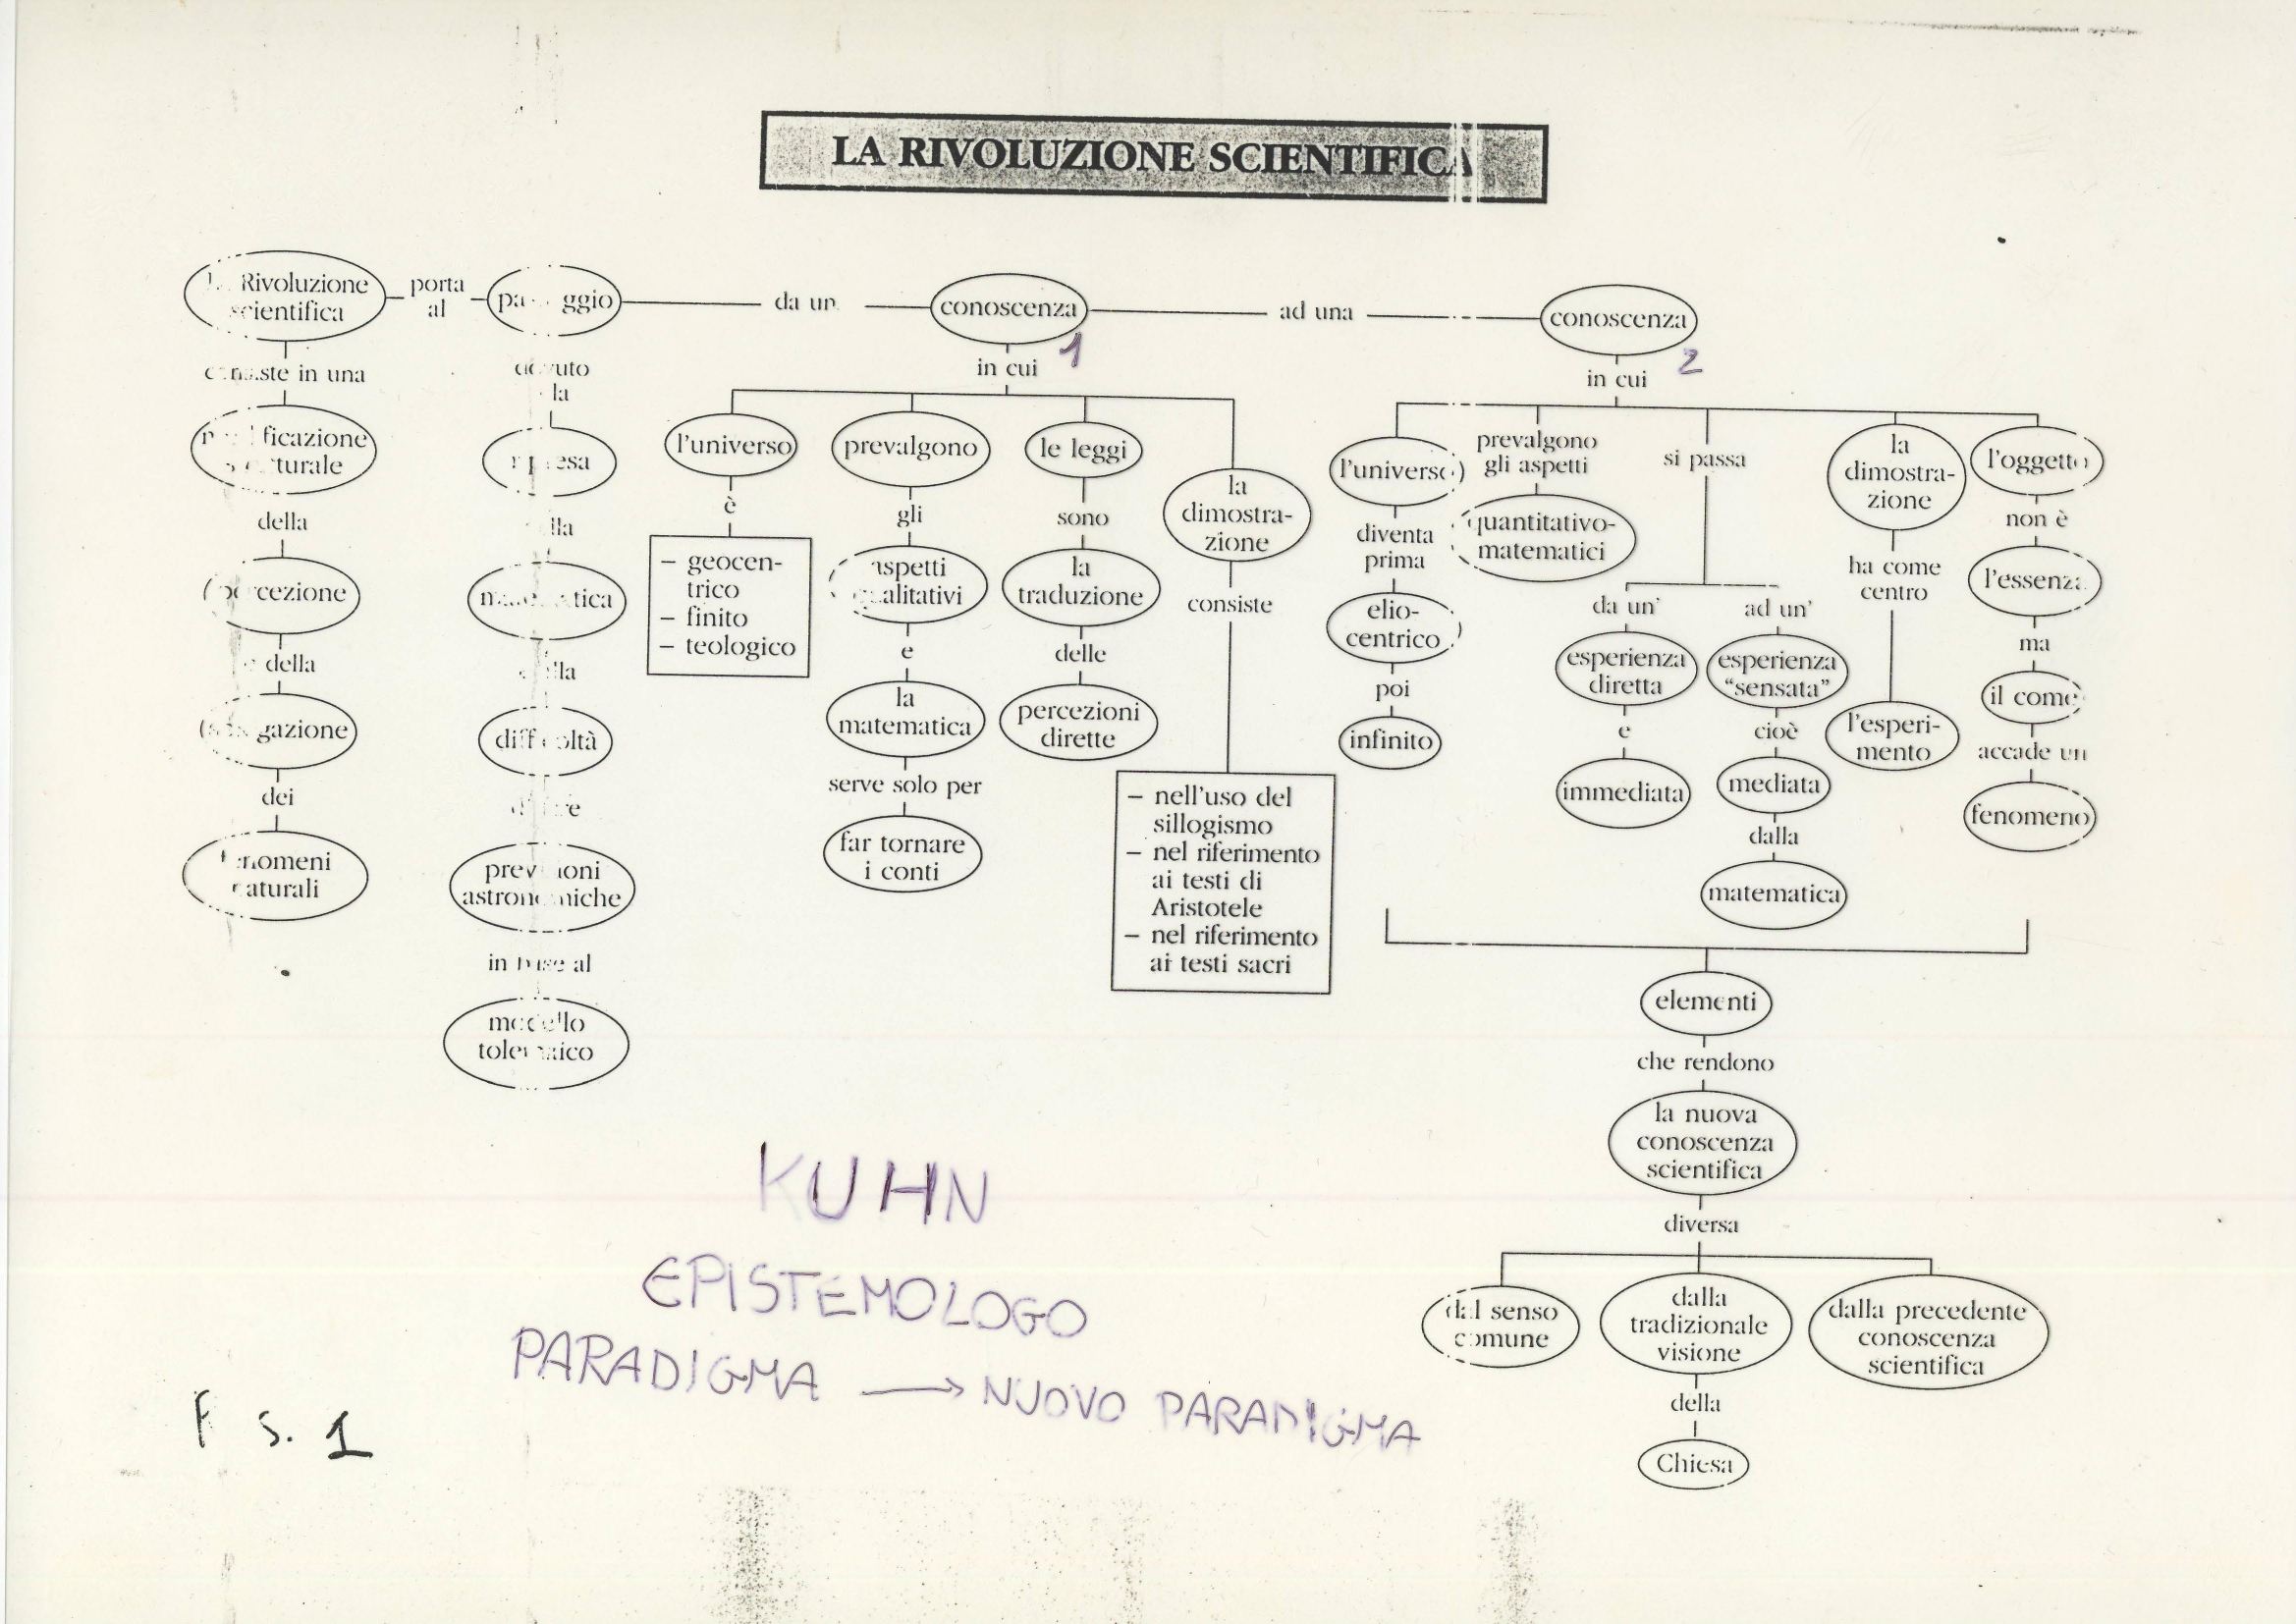 LA RIVOLUZIONE SCIENTIFICA
Rivoluzione
scientifica
porta
al
conoscenza
1
ad una
conoscenza
2
in una
della
della
dei
naturali
astronomiche
in base al
modello
in cui
l'universo
è
– geocen-
trico
– finito
– teologico
prevalgono
gli
aspetti
qualitativi
e
la
matematica
serve solo per
far tornare
i conti
le leggi
sono
la
traduzione
delle
percezioni
dirette
la
dimostra-
zione
consiste
– nell'uso del
sillogismo
– nel riferimento
ai testi di
Aristotele
– nel riferimento
ai testi sacri
in cui
l'universo
diventa
prima
elio-
centrico
poi
infinito
prevalgono
gli aspetti
quantitativo-
matematici
si passa
da un'
esperienza
diretta
e
immediata
ad un'
esperienza
"sensata"
cioè
mediata
dalla
matematica
la
dimostra-
zione
ha come
centro
l'esperi-
mento
l'oggetto
non è
l'essenza
ma
il come
accade un
fenomeno
elementi
che rendono
la nuova
conoscenza
scientifica
diversa
dal senso
comune
dalla
tradizionale
visione
della
Chiesa
dalla precedente
conoscenza
scientifica
KUHN
EPISTEMOLOGO
PARADIGMA → NUOVO PARADIGMA
F S. 1